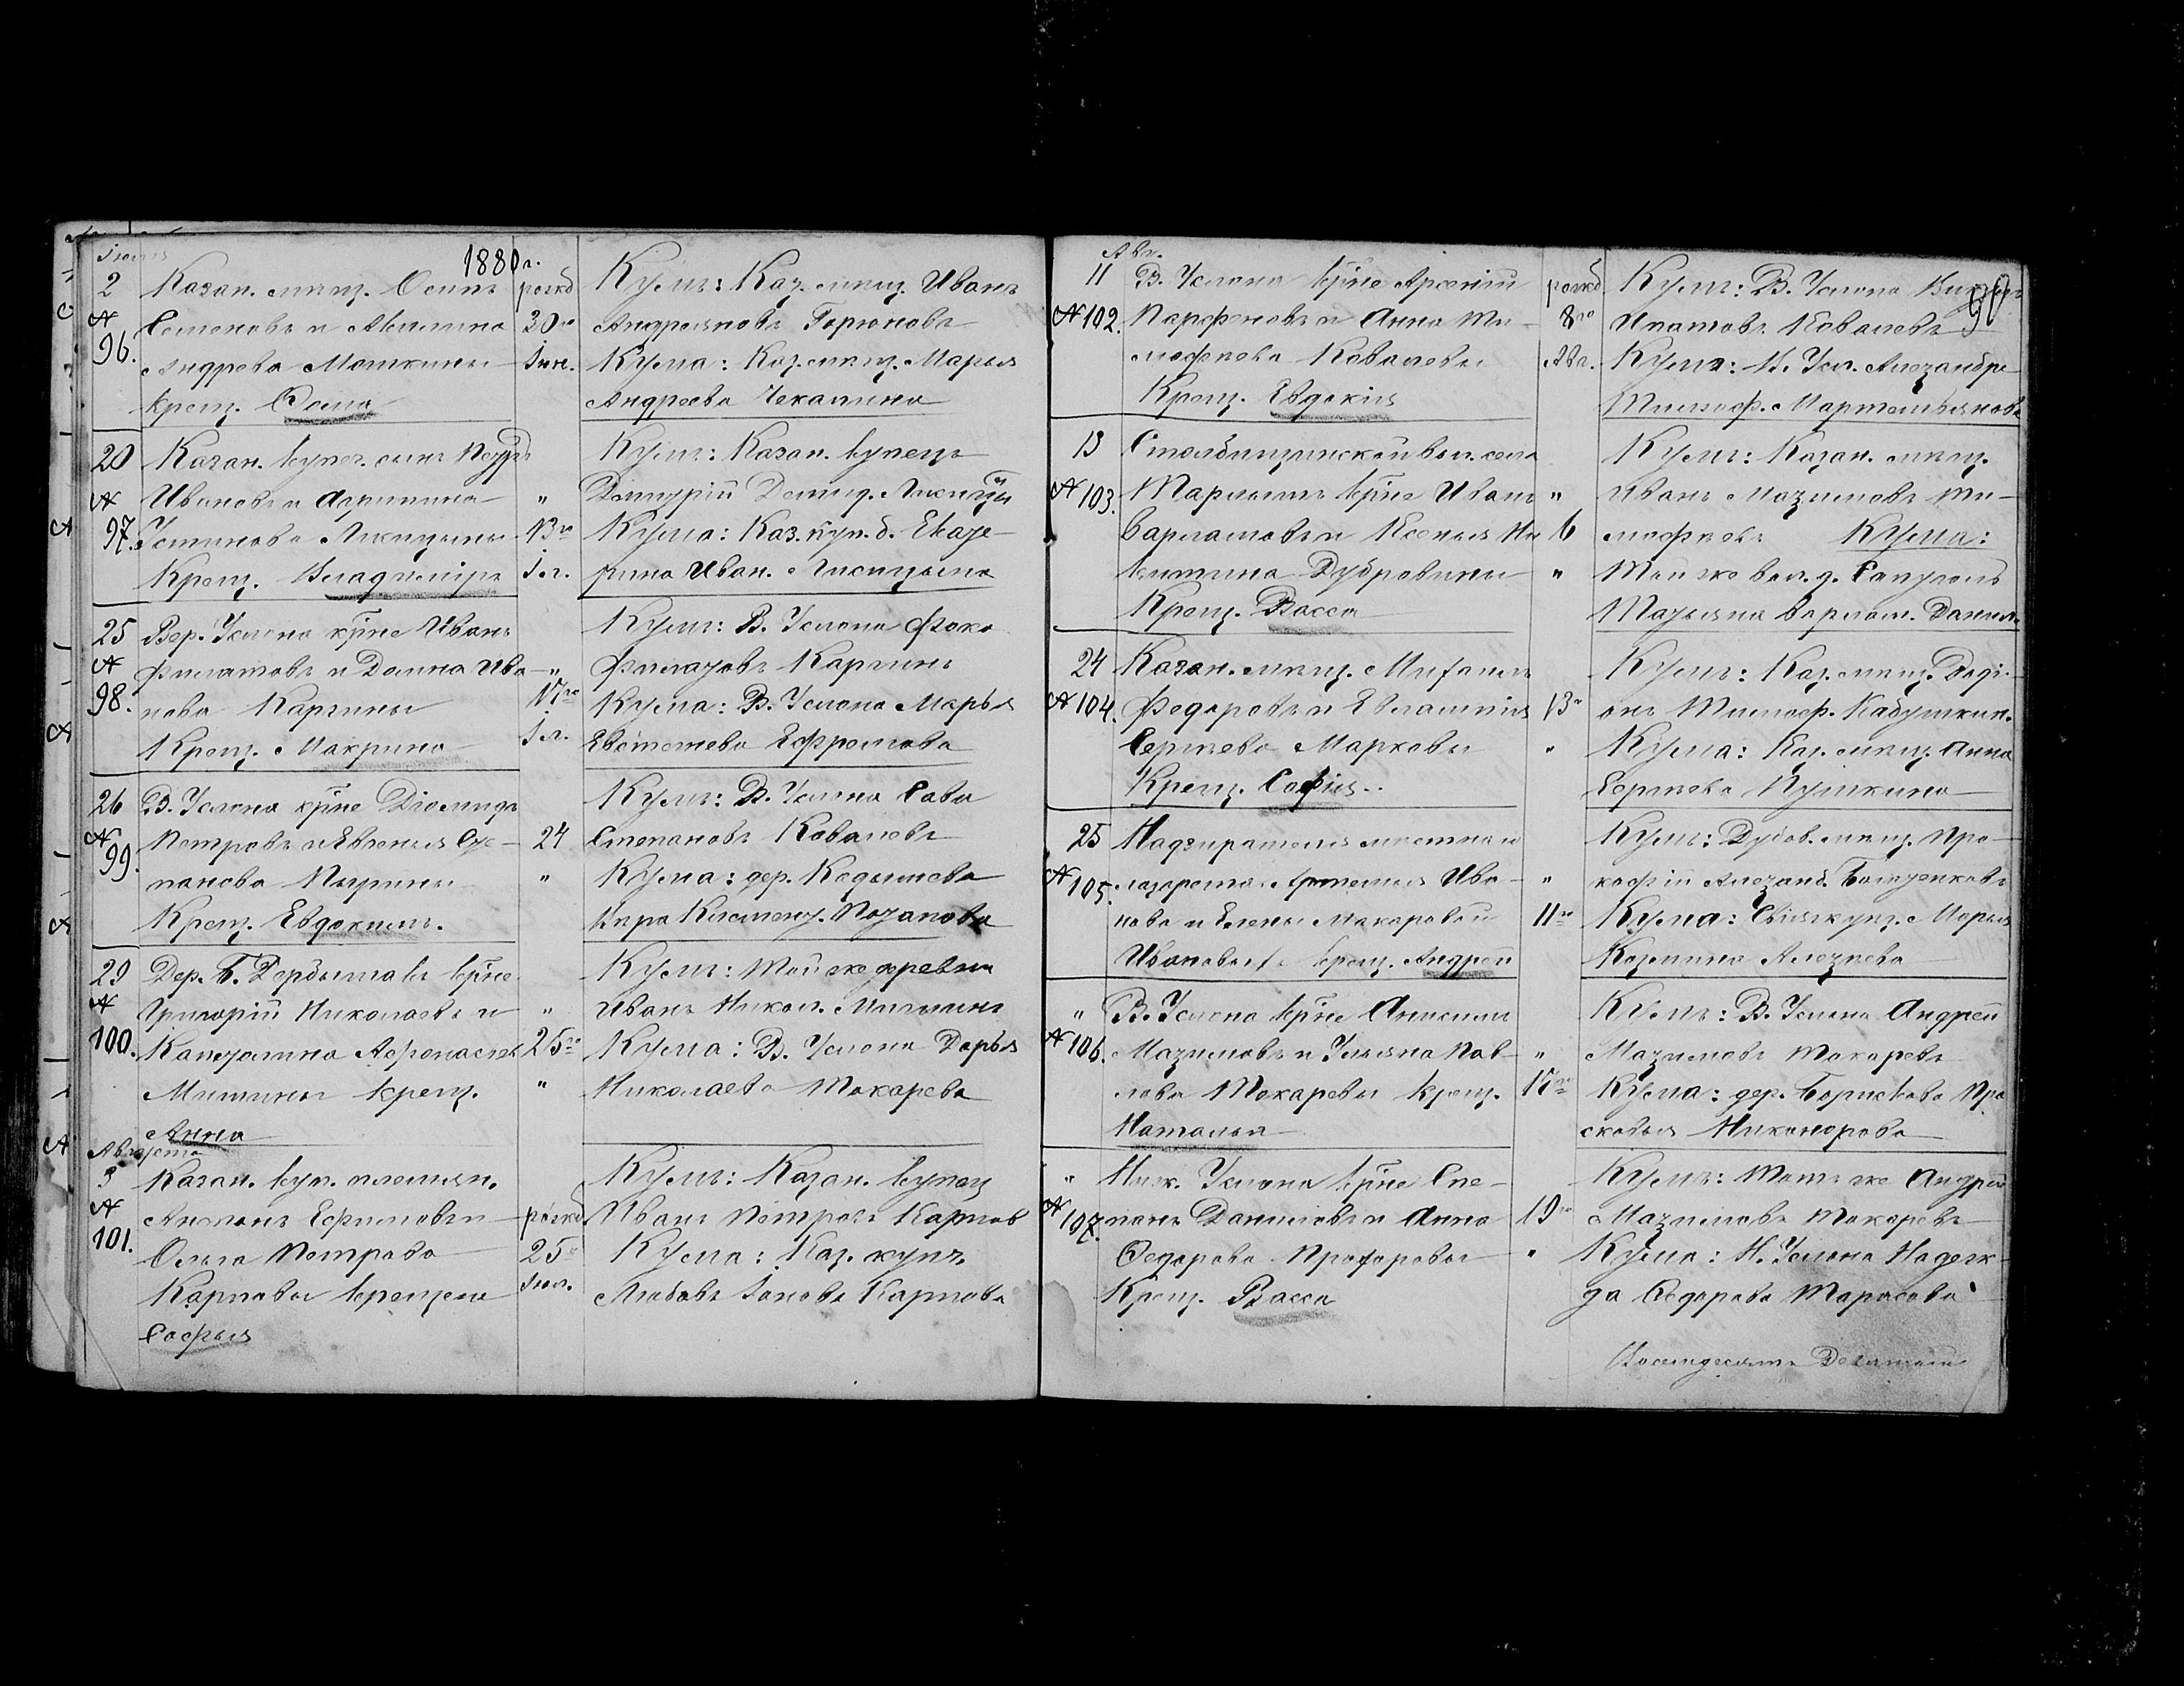 1880 г.
2
№
96.
Казан. мѣщ. Осипъ
Семеновъ и Акилина
Андрева Мошкины
крещ. Ѳома
рожд.
30го
Іюн.
Кумъ: Каз. мѣщ. Иванъ
Андреяновъ Горюновъ
Кума: Каз. мѣщ. Марья
Андреева Чекалина
20
№
97.
Казан. купеч. сынъ Петръ
Ивановъ и Агрипина
Устинова Лисицыны
Крещ. Владиміръ
"
13го
Іл.
Кумъ: Казан. купецъ
Димитрій Демид. Лисицы
Кума: Каз. куп. б. Екате-
рина Иван. Лисицына
25
№
98.
Вер. Услона кр-не Иванъ
Филатовъ и Домна Ива-
нова Каргины
Крещ. Макрина
"
17го
Іл.
Кумъ: В. Услона Фока
Филатовъ Каргинъ
Кума: В. Услона Марья
Евстетева Ефремова
26
№
99.
В. Услона кр-не Діомидъ
Петровъ и Евгенья Сте-
панова Пырины
Крещ. Евдокимъ.
24
"
Кумъ: В. Услона Сава
Степановъ Ковалевъ
Кума: дер. Кедышева
Кира Климент. Позанова
29
№
100.
Дер. Б. Гербышавъ кр-не
Григорій Николаевъ и
Капетолина Афонасьев
Мишины крещ.
Анна
"
25го
"
Кумъ: Той же деревни
Иванъ Никол. Мишинъ
Кума: В. Услона Дарья
Николаева Токарева
Августа
3
№
101.
Казан. куп. племян.
Антонъ Ефимовъ и
Ольга Петрова
Карповы крещена
Софья
рожд.
25го
Іюл.
Кумъ: Казан. купец
Иванъ Петровъ Карпов
Кума: Каз. купч.
Любовь Іонова Карпова
Авг.
90
11
№ 102.
В. Услона кр-не Арсеній
Парфеновъ и Анна Ти-
мофеева Ковалевы
Крещ. Евдокія
рожд.
8го
Авг.
Кумъ: В. Услона
Ипатовъ Ковалевъ
Кума: Н. Усл. Александра
Тимоф. Мартемьянова
13
№ 103.
Столбищинской вол. села
Тарлашъ кр-не Иванъ
Варламовъ и Ксенья Ни
китина Дубровины
Крещ. Васса
"
6
"
Кумъ: Казан. мѣщ.
Иванъ Махимовъ Ти-
мофеевъ Кума:
Той же вол. д. Сапуголь
Татьяна Варлам. Данил.
24
№ 104.
Казан. мѣщ. Михаилъ
Федоровъ и Евлампія
Сергеева Марковы
Крещ. Софія
13го
"
Кумъ: Каз. мѣщ. Родi-
онъ Тимоф. Кадушкин.
Кума: Каз. мѣщ. Анна
Сергеева Пушкина
25
№ 105.
Надзирателя местнаго
лазарета Артемья Ива-
нова и Елены Макаровой
Ивановыхъ крещ. Андрей
"
11го
Кумъ: Дубов. мѣщ. Про-
кофій Александ.
Кума: Свіяж купч. Марья
Козмина Алехеева
"
№ 106.
В. Услона кр-не Аникимъ
Махимовъ и Ульяна Пав-
лова Токаревы крещ.
Наталья
"
17го
Кумъ: В. Услона Андрей
Махимовъ Токаревъ
Кума: дер. Борискова Пра
сковья Никонорова
"
№ 107.
Ниж. Услона кр-не Сте-
панъ Даниловъ и Анна
Федорова Прохоровы
Крещ. Васса
19го
"
Кумъ: Тотъ же Андрей
Махимовъ Токаревъ
Кума: Н. Услона Надеж-
да Федорова Тарасова
Восемдесятъ Девятый